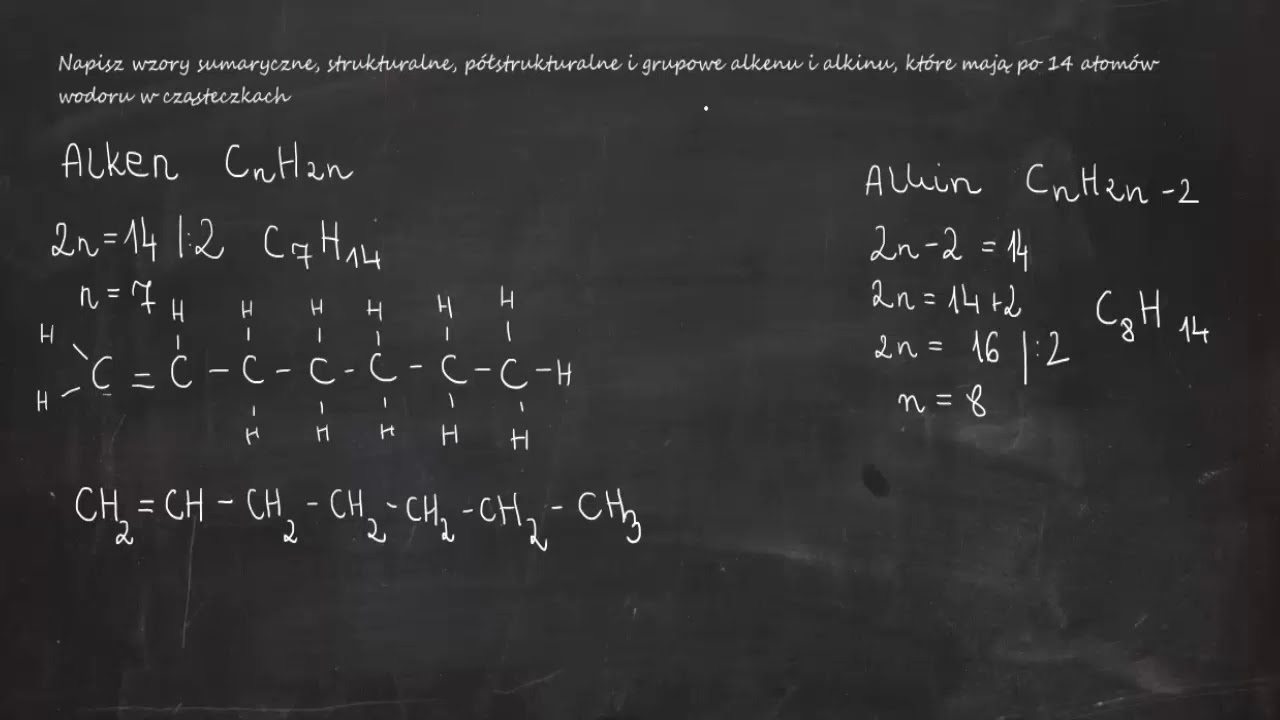 Napisz wzory sumaryczne, strukturalne, półstrukturalne i grupowe alkenu i alkinu, które mają po 14 atomów
wodoru w cząsteczkach
Alken CnH2n
2n=14 |:2 C7H14
n = 7
H H H H H H
H
C = C - C - C - C - C - C - H
H
H H H H H
CH2=CH-CH2-CH2-CH2-CH2-CH3
Alkin CnH2n-2
2n-2 = 14
2n = 14+2
C8H14
2n = 16 |:2
n = 8